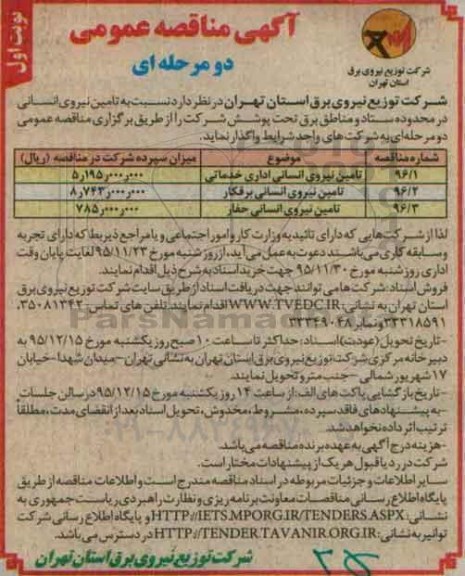 نوبت اول
آگهی مناقصه عمومی
دو مرحله ای
شرکت توزیع نیروی برق
استان تهران
شرکت توزیع نیروی برق استان تهران در نظر دارد نسبت به تامین نیروی انسانی
در محدوده ستاد و مناطق برق تحت پوشش شرکت را از طریق برگزاری مناقصه عمومی
دو مرحله ای به شرکت های واجد شرایط واگذار نماید.
شماره مناقصه موضوع میزان سپرده شرکت در مناقصه (ریال)
۹۶/۱ تامین نیروی انسانی اداری خدماتی ۵٫۱۹۵٫۰۰۰٫۰۰۰
۹۶/۲ تامین نیروی انسانی برقکار ۸٫۷۴۳٫۰۰۰٫۰۰۰
۹۶/۳ تامین نیروی انسانی حفار ۷۸۵٫۰۰۰٫۰۰۰
لذا از شرکت هایی که دارای تائیدیه وزارت کار و امور اجتماعی و یا مراجع ذیربط که دارای تجربه
و سابقه کاری می باشند دعوت به عمل می آید، از روز شنبه مورخ ۹۵/۱۱/۲۳ لغایت پایان وقت
اداری روز شنبه مورخ ۹۵/۱۱/۳۰ جهت خرید اسناد به شرح ذیل اقدام نمایند.
فروش اسناد: شرکت ها می توانند جهت دریافت اسناد از طریق سایت شرکت توزیع نیروی برق
استان تهران به نشانی: WWW.TVEDC.IR اقدام نمایند. تلفن های تماس: ۳۵۰۸۱۳۴۲،
۳۳۳۱۸۵۹۱ و نمابر ۳۳۳۴۹۰۴۸
-تاریخ تحویل (عودت) اسناد: حداکثر تا ساعت ۱۰ صبح روز یکشنبه مورخ ۹۵/۱۲/۱۵ به
دبیرخانه مرکزی شرکت توزیع نیروی برق استان تهران به نشانی تهران -میدان شهدا- خیابان
۱۷ شهریور شمالی -جنب مترو تحویل نمایند.
-تاریخ بازگشایی پاکت های الف: از ساعت ۱۴ روز یکشنبه مورخ ۹۵/۱۲/۱۵ در سالن جلسات
-به پیشنهادهای فاقد سپرده، مشروط، مخدوش، تحویل اسناد بعد از انقضای مدت، مطلقاً
ترتیب اثر داده نخواهد شد.
-هزینه درج آگهی به عهده برنده مناقصه می باشد.
شرکت در رد یا قبول هر یک از پیشنهادات مختار است.
سایر اطلاعات و جزئیات مربوطه در اسناد مناقصه مندرج است و اطلاعات مناقصه از طریق
پایگاه اطلاع رسانی مناقصات معاونت برنامه ریزی و نظارت راهبردی ریاست جمهوری به
نشانی: HTTP://IETS.MPORG.IR/TENDERS.ASPX و پایگاه اطلاع رسانی شرکت
توانیر به نشانی: HTTP://TENDER.TAVANIR.ORG.IR در دسترس می باشد.
شرکت توزیع نیروی برق استان تهران